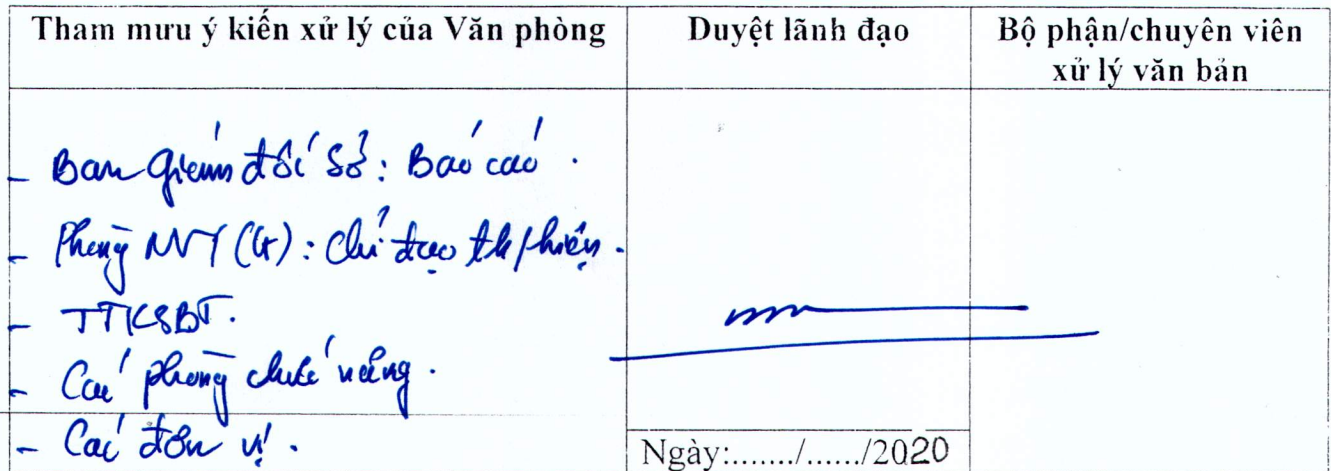 Tham mưu ý kiến xử lý của Văn phòng
Duyệt lãnh đạo
Bộ phận/chuyên viên
xử lý văn bản
- Ban Giám đốc Sở: Báo cáo.
- Phòng NVY (G): Chỉ đạo th/hiện.
- TTKSBT.
- Các phòng chức năng.
- Các đơn vị.
Ngày:......./....../2020